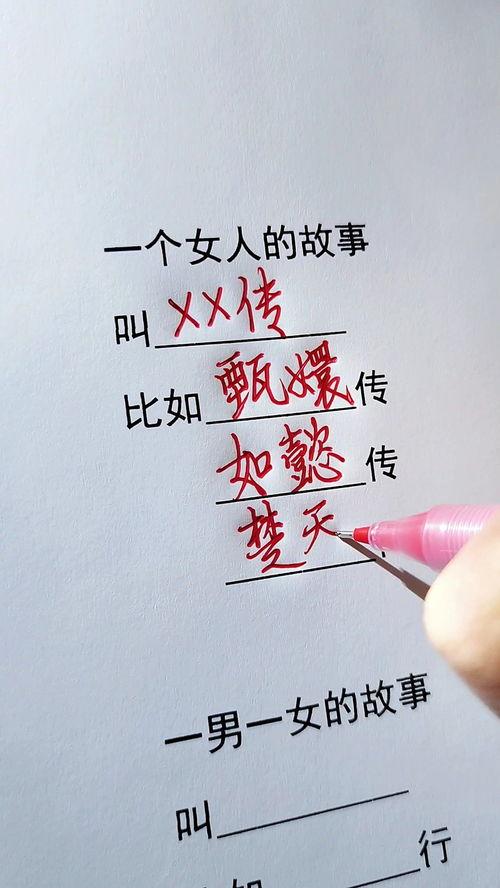 一个女人的故事
叫XX传
比如甄嬛传
如懿传
楚天
一男一女的故事
叫
行